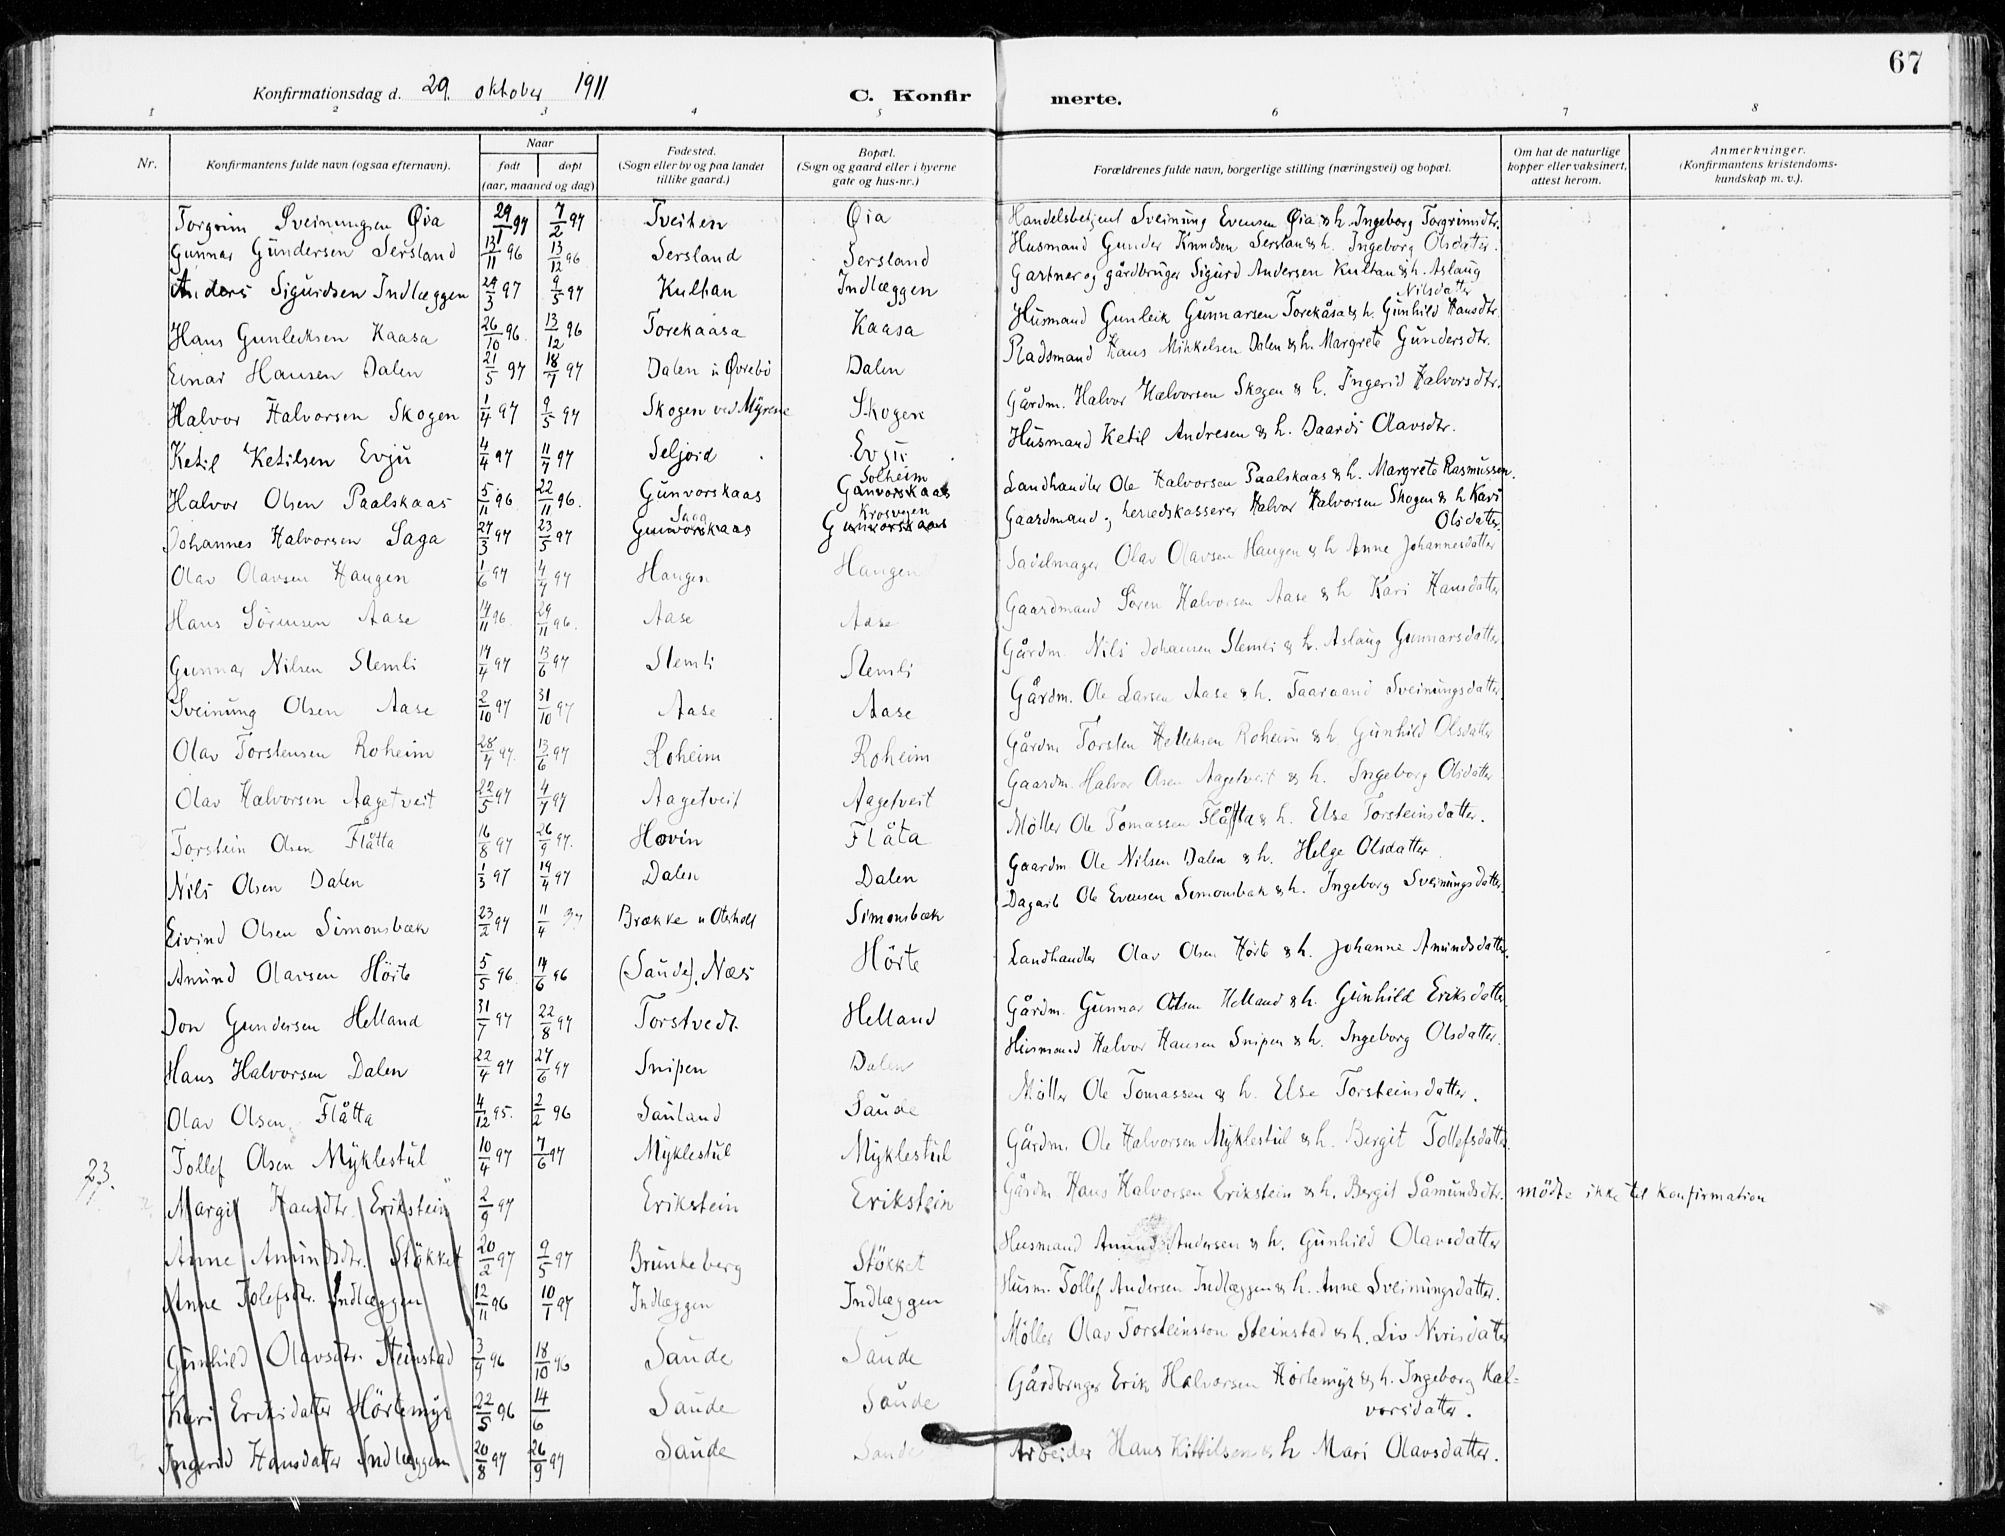 67
Konfirmationsdag d. 29. oktober 1911
C. Konfirmerte.
1 2 3 4 5 6 7 8
Nr. Konfirmantens fulde navn (ogsaa efternavn). Naar født døpt (aar, maaned og dag) Fødested. (Sogn eller by og paa landet tillike gaard.) Bopæl. (Sogn og gaard eller i byerne gate og hus-nr.) Forældrenes fulde navn, borgerlige stilling (næringsvei) og bopæl. Om hat de naturlige kopper eller vaksinert, attest herom. Anmerkninger. (Konfirmantens kristendoms-kundskap m. v.).
Torgrim Sveinungsen Øia 29/1 97 7/2 97 Tveiten Øia Handelsbetjent Sveinung Evensen Øia & h. Ingeborg Torgrimsdtr.
Gunnar Gundersen Sersland 13/11 96 13/12 96 Sersland Sersland Husmand Gunder Knudsen Serslan & h. Ingeborg Olsdatter.
Anders Sigurdsen Indlæggen 29/3 97 9/5 97 Kultan Indlæggen Gartner og gårdbruger Sigurd Andersen Kultan & h. Aslaug Nilsdatter
Hans Gunleiksen Kaasa 26/10 96. 13/12 96 Torekaasa Kaasa Husmand Gunleik Gunnarsen Torekåsa & h. Gunhild Hansdtr.
Einar Hansen Dalen 21/5 97 18/7 97 Dalen i Øvrebö Dalen Pladsmand Hans Mikkelsen Dalen & h. Margrete Gundersdtr.
Halvor Halvorsen Skogen 1/4 97 9/5 97 Skogen ved Myrene Skogen Gårdm. Halvor Halvorsen Skogen & h. Ingerid Halvorsdtr.
Ketil Ketilsen Evju 4/4 97 11/7 97 Seljord Evju Husmand Ketil Andresen & h. Daardi Olavsdtr.
Halvor Olsen Paalskaas 5/11 96 22/11 96. Gunvorskaas Gunvorskaas Solheim Landhandler Ole Halvorsen Paalskaas & h. Margrete Rasmussen.
Johannes Halvorsen Saga 27/3 97 23/5 97 Gunvorskaas Saga Gunvorskaas Krosvegen Gaardmand og herredskasserer Halvor Halvorsen Skogen & h Kari Olsdatter.
Olav Olavsen Haugen 1/6 97 4/7 97 Haugen Haugen Sadelmager Olav Olavsen Haugen & h Anne Johannesdatter
Hans Sörensen Aase 14/11 96. 29/11 96. Aase Aase Gaardmand Sören Halvorsen Aase & h Kari Hansdatter
Gunnar Nilsen Slemli 14/4 97 13/6 97 Slemli Slemli Gårdm. Nils Johansen Slemli & h. Aslaug Gunnarsdatter
Sveinung Olsen Aase 2/10 97 31/10 97 Aase Aase Gårdm. Ole Larsen Aase & h. Taaraand Sveinungsdatter.
Olav Torstensen Roheim 28/4 97. 13/6 97 Roheim Roheim Gårdm Torsten Helleksen Roheim & h. Gunhild Olsdatter
Olav Halvorsen Aagetveit 22/5 97 4/7 97 Aagetveit Aagetveit Gaardm. Halvor Olsen Aagetveit & h. Ingeborg Olsdatter
Torstein Olsen Flåtta 16/8 97 26/9 97. Hovin Flåta Möller Ole Tomassen Flåtta & h. Else Torsteinsdatter.
Nils Olsen Dalen 1/3 97 19/4 97 Dalen Dalen Gaardm. Ole Nilsen Dalen & h. Helge Olsdatter
Eivind Olsen Simonsbæk 23/2 97 11/4 97 Brække Simonsbæk Dagarb Ole Evensen Simonsbæk & h. Ingeborg Sveinungsdatter
Amund Olavsen Hörte 5/5 96 14/6 96 (Saude). Næs Hörte Landhandler Olav Olsen Hörte & h. Johanne Amundsdatter.
Jon Gundersen Helland 31/7 97 22/8 97 Torstvedt Helland Gårdm. Gunnar Olsen Helland & h. Gunhild Eriksdatter
Hans Halvorsen Dalen 22/4 97 27/6 97 Snipen Dalen Husmand Halvor Hansen Snipen & h. Ingeborg Olsdatter.
Olav Olsen Flåtta 4/12 95. 2/2 96 Sauland Saude Möller Ole Tomassen & h. Else Torsteinsdatter.
23. Tollef Olsen Myklestul 10/4 97 7/6 97 Myklestul Myklestul Gårdm. Ole Halvorsen Myklestul & h. Bergit Tollefsdatter
Margit Hansdtr. Erikstein 2/9 97 Erikstein Erikstein Gårdm Hans Halvorsen Erikstein & h. Bergit Såmundsdtr. mödte ikke til konfirmation
Anne Amundsdtr. Stökket 20/2 97 9/5 97 Brunkeberg Stökket Husmand Amund Andersen & h. Gunhild Olavsdatter
Anne Tolefsdtr. Indlæggen 12/11 96 10/1 97 Indlæggen Indlæggen Husm. Tollef Andersen Indlæggen & h. Anne Sveinungsdatter.
Gunhild Olavsdtr. Steinstad 3/9 96 18/10 96 Saude Saude Möller Olav Torsteinsson Steinstad & h. Liv Nirisdatter
Kari Eriksdatter Hörtemyr 22/5 96 14/6 Saude Saude Gårdbruger Erik Halvorsen Hörtemyr & h. Ingeborg Halvorsdatter.
Ingerid Hansdatter Indlæggen 20/8 97 26/9 97 Saude Saude Arbeider Hans Kittilsen & h Mari Olavsdatter.